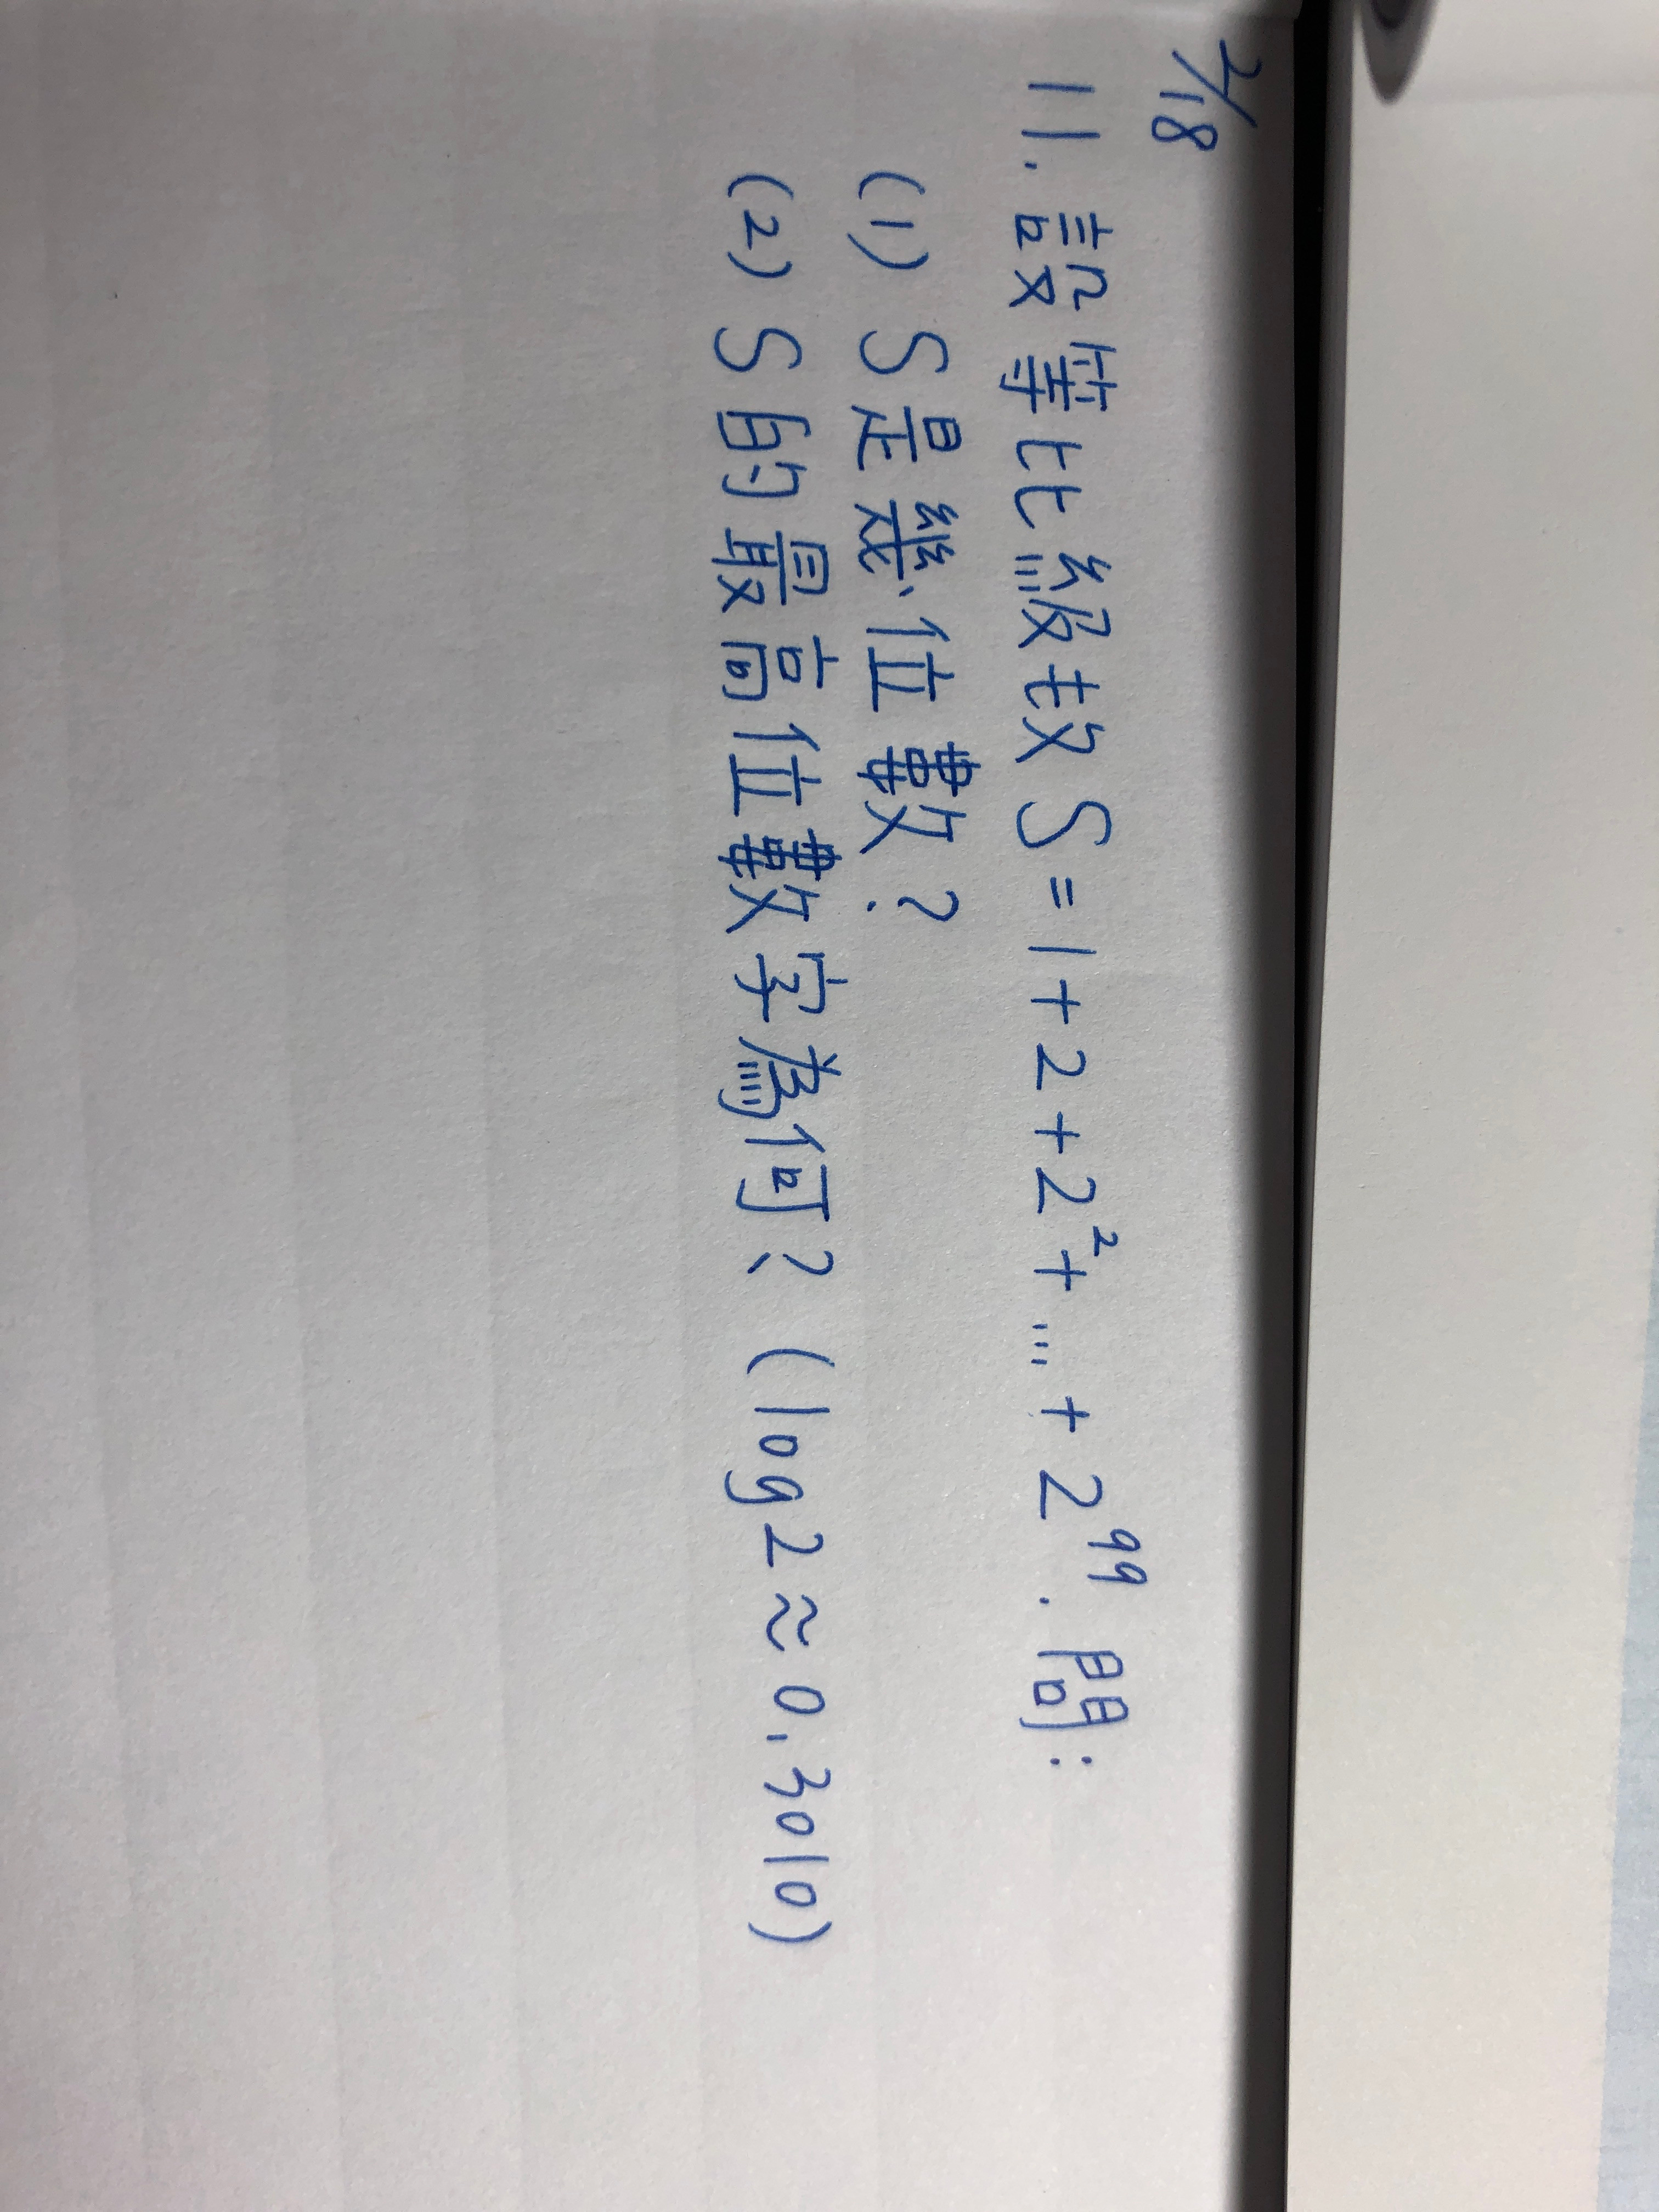 2/18
11. 設等比級数 S = 1 + 2 + 2² + ... + 2⁹⁹. 問:
(1) S是幾位數?
(2) S的最高位數字為何? (log2≈0.3010)